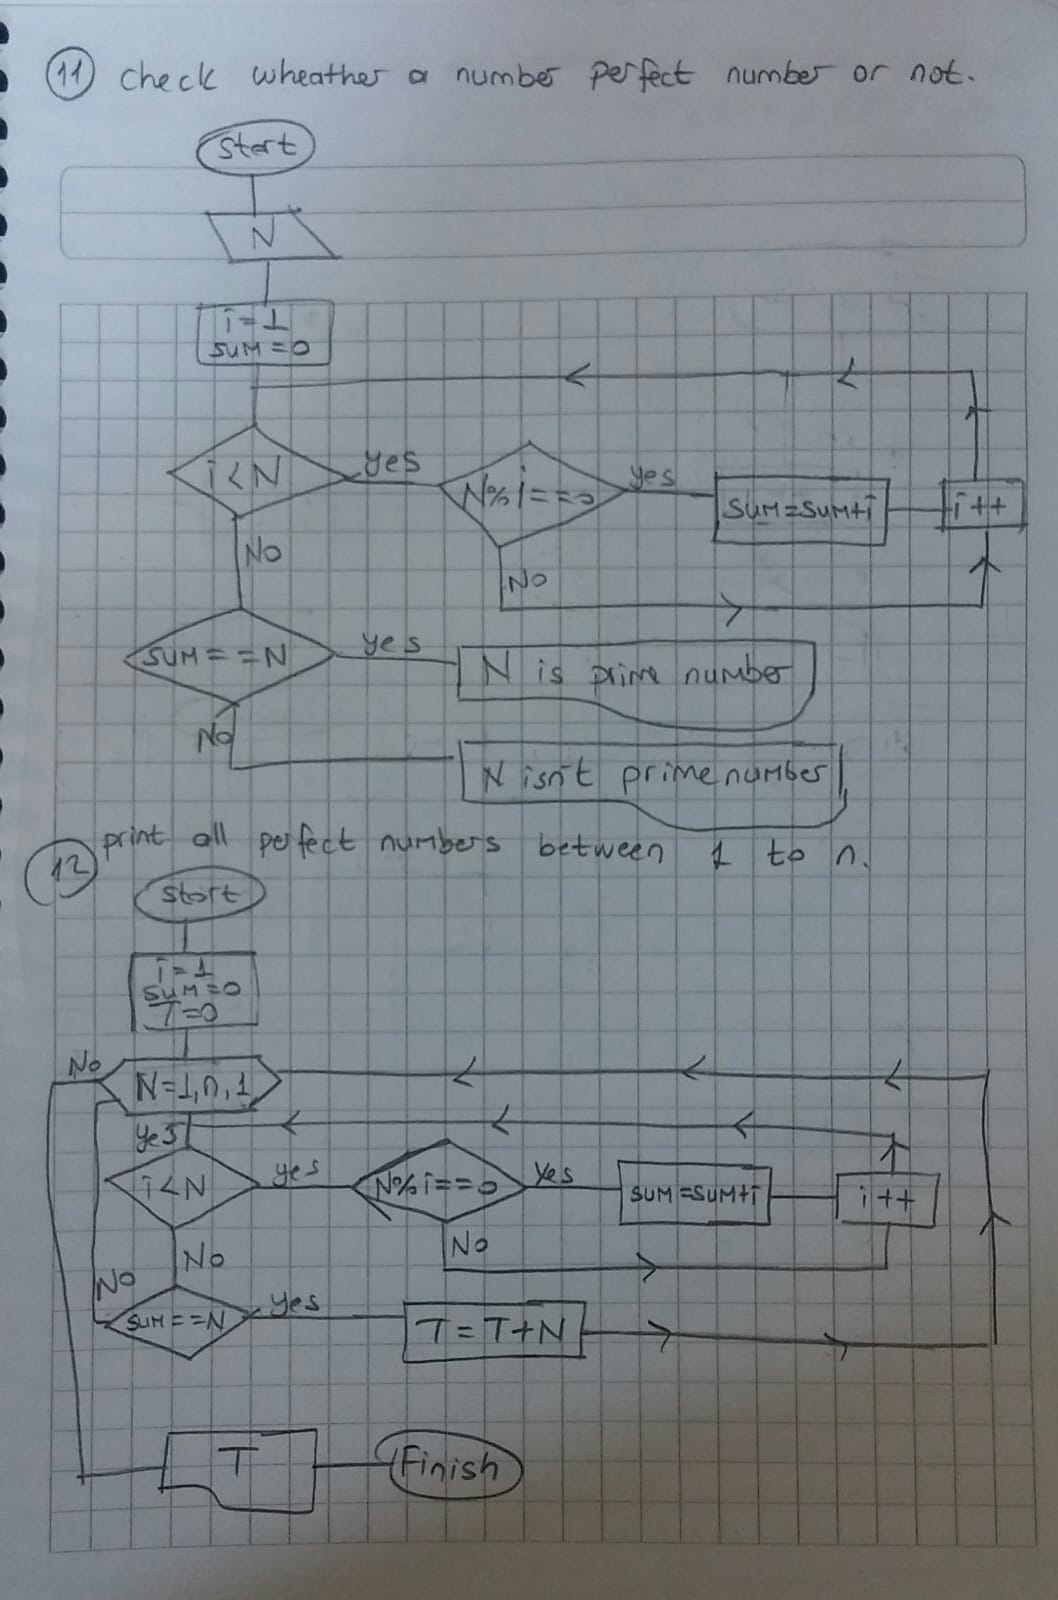 11 check wheather a number perfect number or not.
start
N
i=1
SUM=0
i<N
yes
N%i==0
yes
SUM=SUM+i
i++
No
No
SUM==N
yes
N is prime number
No
N isn't prime number
12 print all perfect numbers between 1 to n.
start
i=1
SUM=0
T=0
No
N=1,n,1
yes
i<N
yes
N%i==0
yes
SUM=SUM+i
i++
No
No
No
SUM==N
yes
T=T+N
T
Finish